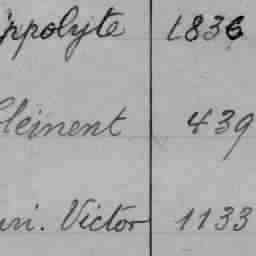 ippolyte 1836
Cleinent 439
uri. Victor 1133